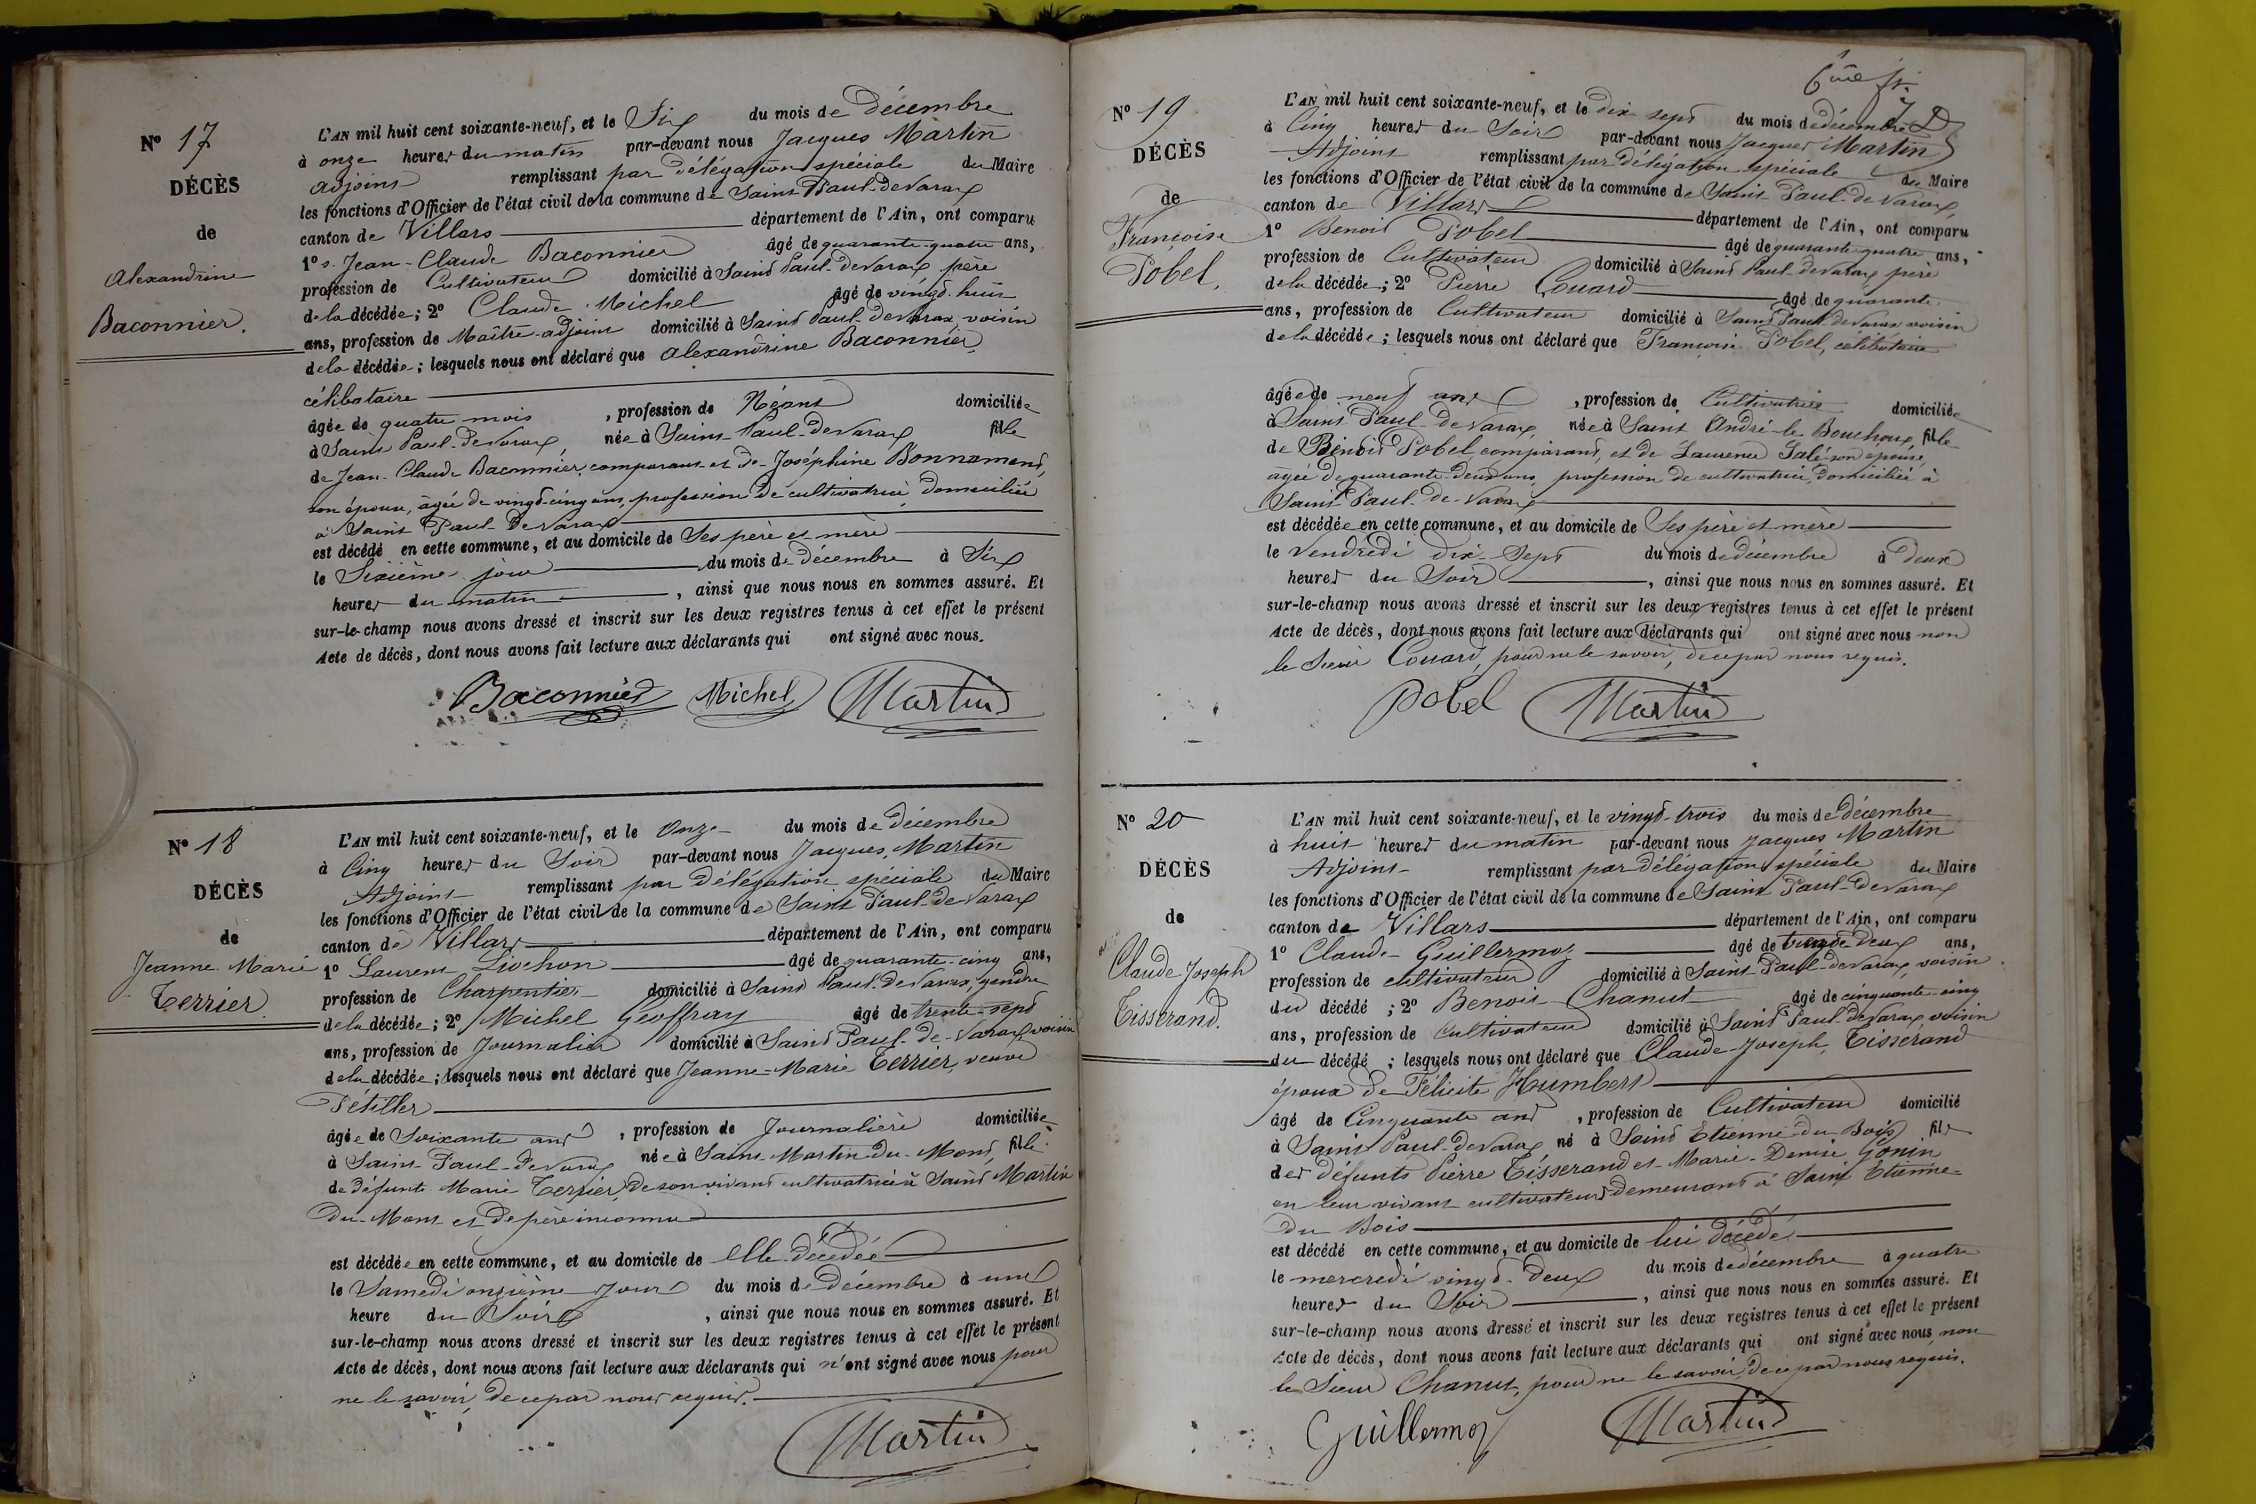 N° 17
DÉCÈS
de
Alexandrine
Baconnier.
L'AN mil huit cent soixante-neuf, et le Six du mois de décembre
à onze heures du matin par-devant nous Jacques Martin
adjoint remplissant par délégation spéciale du Maire
les fonctions d'Officier de l'état civil de la commune de Saint Paul-de Varax
canton de Villars département de l'Ain, ont comparu
1° s. Jean-Claude Baconnier âgé de quarante-quatre ans,
profession de Cultivateur domicilié à Saint Paul-de Varax père
de la décédée; 2° Claude Michel âgé de vingt-huit
ans, profession de Maître-adjoint domicilié à Saint Paul-de Varax, voisin
de la décédée; lesquels nous ont déclaré que Alexandrine Baconnier,
célibataire
âgée de quatre mois, profession de Néant domiciliée
à Saint Paul-de Varax, née à Saint-Paul-de Varax, fille
de Jean-Claude Baconnier, comparant et de Joséphine Bonnamour,
son épouse, âgée de vingt-cinq ans, profession de cultivatrice, domiciliée
à Saint Paul-de Varax
est décédé en cette commune, et au domicile de Ses père et mère
le Sixième jour du mois de décembre à Six
heures du matin, ainsi que nous nous en sommes assuré. Et
sur-le-champ nous avons dressé et inscrit sur les deux registres tenus à cet effet le présent
Acte de décès, dont nous avons fait lecture aux déclarants qui ont signé avec nous.
Baconnier Michel Martin
N° 18
DÉCÈS
de
Jeanne Marie
Terrier.
L'AN mil huit cent soixante-neuf, et le Onze du mois de décembre
à Cinq heures du Soir par-devant nous Jacques Martin
Adjoint remplissant par délégation spéciale du Maire
les fonctions d'Officier de l'état civil de la commune de Saint Paul-de-Varax
canton de Villars département de l'Ain, ont comparu
1° Laurent Liochon âgé de quarante-cinq ans,
profession de Charpentier domicilié à Saint Paul-de Varax, gendre
de la décédée; 2° Michel Geoffray âgé de trente-sept
ans, profession de Journalier domicilié à Saint Paul-de-Varax voisin
de la décédée; lesquels nous ont déclaré que Jeanne-Marie Terrier, veuve
Pétiller
âgée de Soixante ans, profession de Journalière domiciliée
à Saint-Paul-de Varax née à Saint-Martin-du-Mont, fille
de défunte Marie Terrier, de son vivant cultivatrice à Saint Martin
du-Mont et de père inconnu
est décédée en cette commune, et au domicile de elle décédée
le Samedi onzième Jour du mois de décembre à une
heure du Soir, ainsi que nous nous en sommes assuré. Et
sur-le-champ nous avons dressé et inscrit sur les deux registres tenus à cet effet le présent
Acte de décès, dont nous avons fait lecture aux déclarants qui n'ont signé avec nous pour
ne le savoir, de ce par nous requis.
Martin
N° 19
DÉCÈS
de
Françoise
Pobel.
L'AN mil huit cent soixante-neuf, et le dix sept du mois de décembre
à Cinq heures du Soir par-devant nous Jacques Martin
Adjoint remplissant par délégation spéciale du Maire
les fonctions d'Officier de l'état civil de la commune de Saint Paul-de Varax
canton de Villars département de l'Ain, ont comparu
1° Benoit Pobel âgé de quarante-quatre ans,
profession de Cultivateur domicilié à Saint Paul-de Varax, père
de la décédée; 2° Pierre Couard âgé de quarante
ans, profession de Cultivateur domicilié à Saint Paul-de Varax voisin
de la décédée; lesquels nous ont déclaré que Françoise Pobel, célibataire
âgée de neuf ans, profession de Cultivatrice domiciliée
à Saint Paul-de Varax, née à Saint André-le Bouchoux, fille
de Benoit Pobel comparant, et de Laurence Salé son épouse,
âgée de quarante-deux ans, profession de cultivatrice, domiciliée à
Saint Paul-de-Varax
est décédée en cette commune, et au domicile de Ses père et mère
le Vendredi dix-Sept du mois de décembre à Deux
heures du Soir, ainsi que nous nous en sommes assuré. Et
sur-le-champ nous avons dressé et inscrit sur les deux registres tenus à cet effet le présent
Acte de décès, dont nous avons fait lecture aux déclarants qui ont signé avec nous non
le Sieur Couard, pour ne le savoir, de ce par nous requis.
Pobel Martin
N° 20
DÉCÈS
de
Claude Joseph
Tisserand.
L'AN mil huit cent soixante-neuf, et le vingt-trois du mois de décembre
à huit heures du matin par-devant nous Jacques Martin
Adjoint remplissant par délégation spéciale du Maire
les fonctions d'Officier de l'état civil de la commune de Saint Paul-de Varax
canton de Villars département de l'Ain, ont comparu
1° Claude Guillermoz âgé de trente deux ans,
profession de cultivateur domicilié à Saint-Paul-de Varax, voisin
du décédé; 2° Benoit Chanut âgé de cinquante-cinq
ans, profession de cultivateur domicilié à Saint Paul-de Varax voisin
du décédé; lesquels nous ont déclaré que Claude-Joseph Tisserand
époux de Félicite Humbert
âgé de Cinquante ans, profession de Cultivateur domicilié
à Saint Paul-de Varax né à Saint Etienne-du Bois, fils
des défunts Pierre Tisserand et Marie-Denise Gonin
en leur vivant cultivateurs demeurant à Saint Etienne-
du Bois
est décédé en cette commune, et au domicile de lui décédé,
le mercredi vingt-deux du mois de décembre à quatre
heures du Soir, ainsi que nous nous en sommes assuré. Et
sur-le-champ nous avons dressé et inscrit sur les deux registres tenus à cet effet le présent
Acte de décès, dont nous avons fait lecture aux déclarants qui ont signé avec nous, non
le Sieur Chanut, pour ne le savoir, de ce par nous requis.
Guillermoz Martin